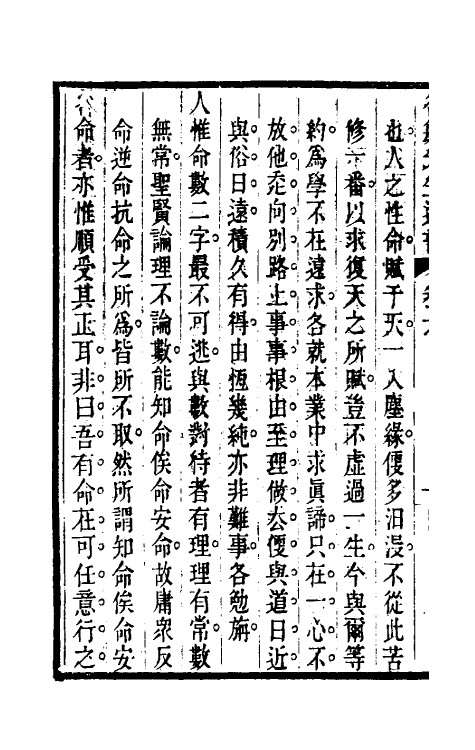 也人之性命賦于天一入塵緣便多汨沒不從此苦
修一番以求復天之所賦豈不虛過一生今與爾等
約為學不在遠求各就本業中求眞諦只在一心不
放他走向別路上事事根由至理做去便與道日近
與俗日遠積久有得由恆幾純亦非難事各勉旃
人惟命數二字最不可逃與數對待者有理理有常數
無常聖賢論理不論數能知命俟命安命故庸衆反
命逆命抗命之所為皆所不取然所謂知命俟命安
命者亦惟順受其正耳非曰吾有命在可任意行之